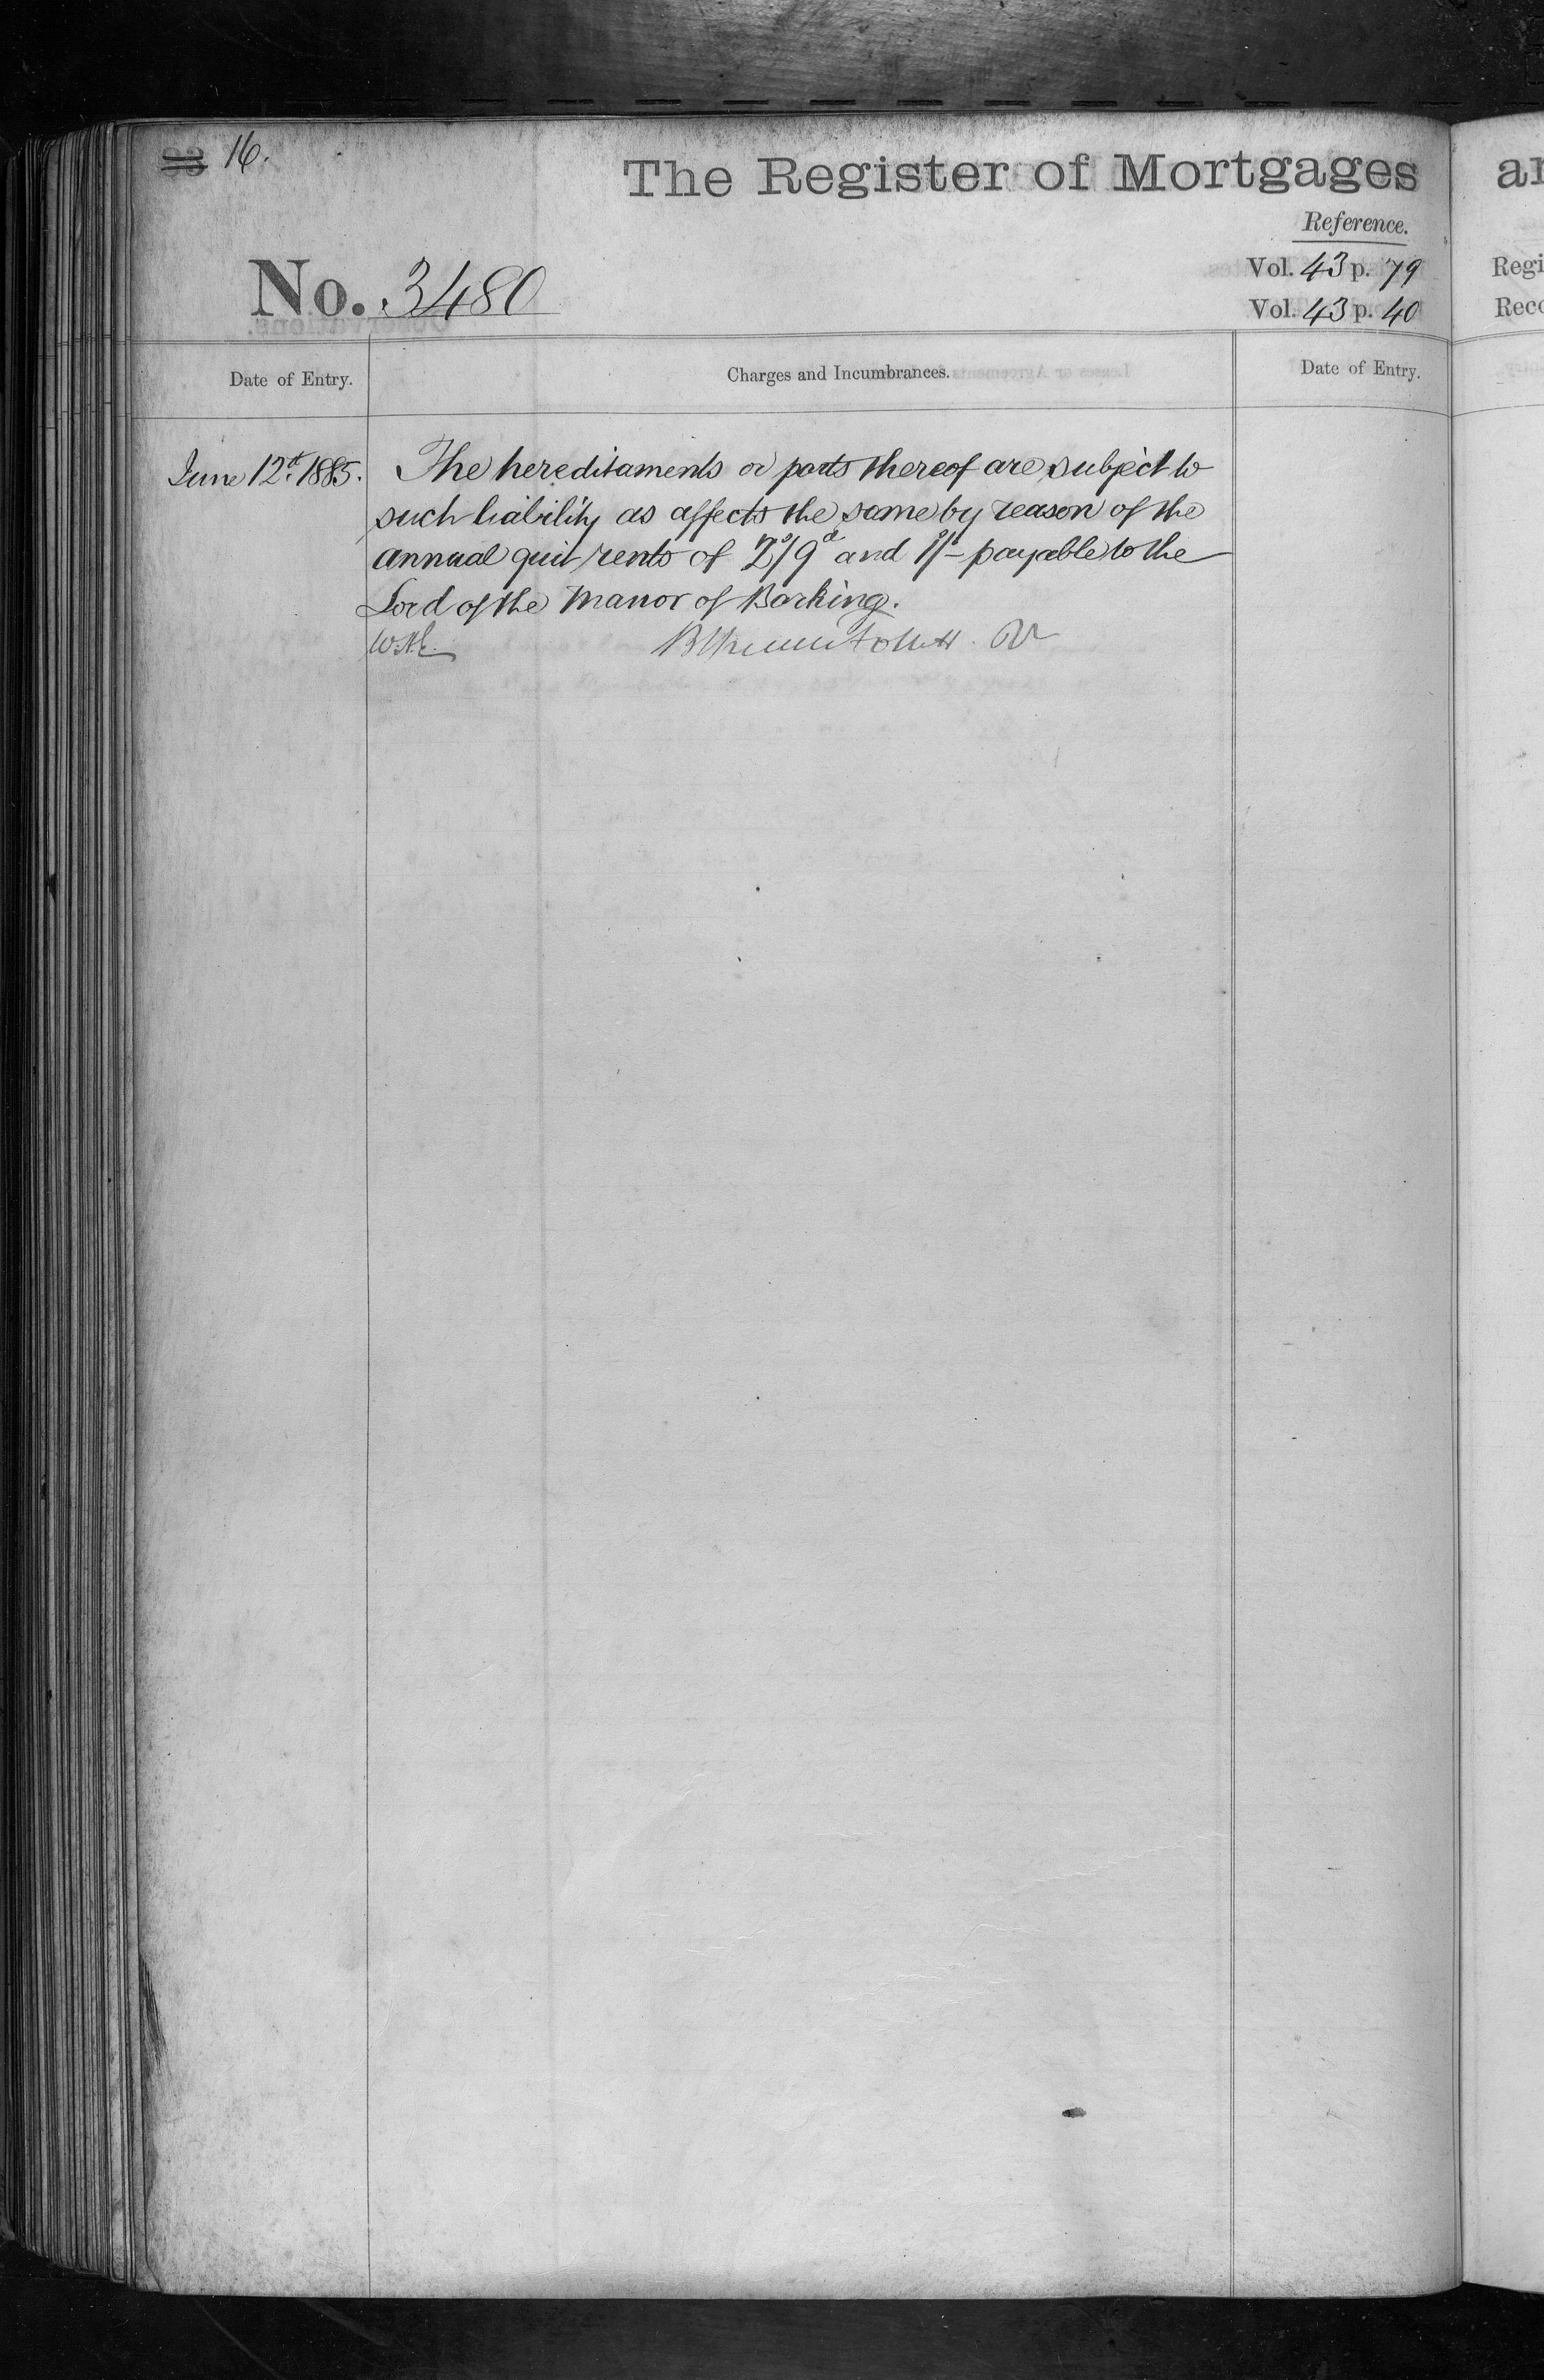 16.
The Register of Mortgages
Reference.
No. 3480
Vol. 43 p. 79
Vol. 43 p. 40
Regi
Reco
Date of Entry.
Charges and Incumbrances.
Date of Entry.
June 12th 1885.
The hereditaments or parts thereof are subject to
such liability as affects the same by reason of the
annual quit rents of 2s/9d and 1s/- payable to the
Lord of the Manor of Barking.